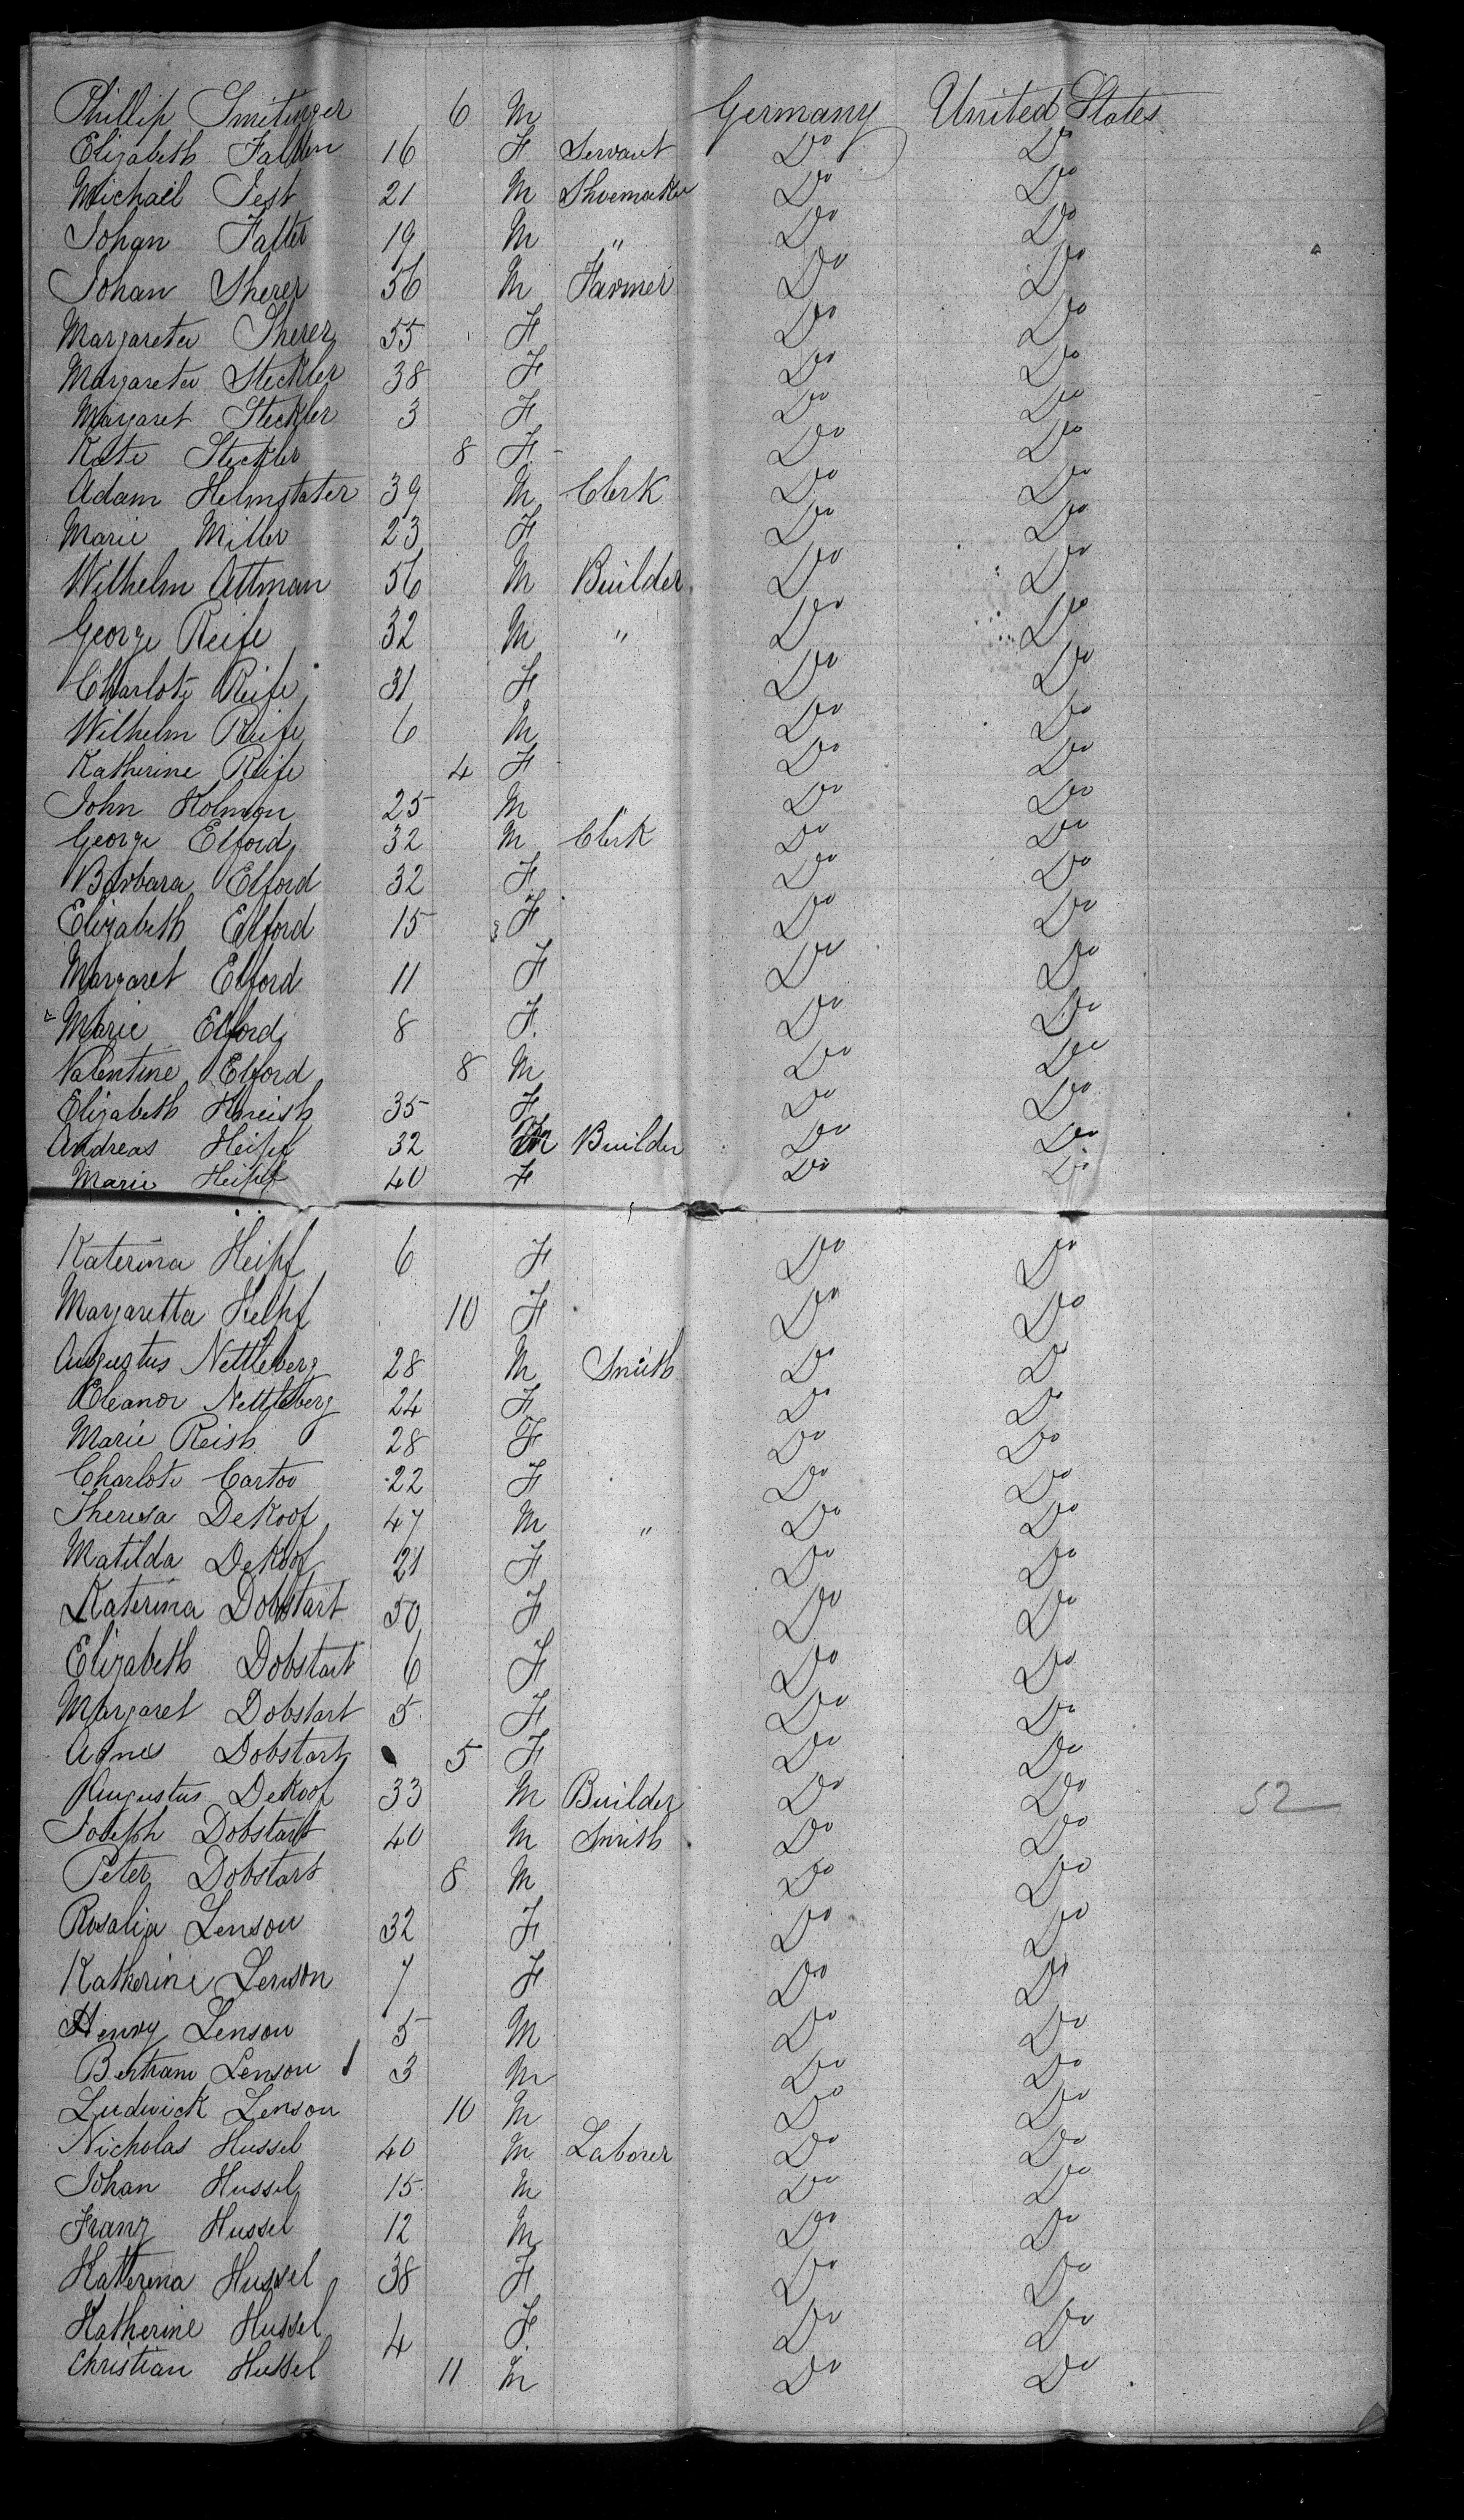 Phillip Smitinger 6 M Germany United States
Elizabeth Falten 16 F Servant Do Do
Michael Fest 21 M Shoemaker Do Do
Johan Falter 19 M " Do Do
Johan Sherer 56 M Farmer Do Do
Margareta Sherer 55 F Do Do
Margareta Steckler 38 F Do Do
Margaret Steckler 3 F Do Do
Kate Steckler 8 F Do Do
Adam Helmstater 39 M Clerk Do Do
Marie Miller 23 F Do Do
Wilhelm Attman 56 M Builder Do Do
George Reife 32 M " Do Do
Charlote Reife 31 F Do Do
Wilhelm Reife 6 M Do Do
Katherine Reife 4 F Do Do
John Holman 25 M Do Do
George Elford 32 M Clerk Do Do
Barbara Elford 32 F Do Do
Elizabeth Elford 15 F Do Do
Margaret Elford 11 F Do Do
Marie Elford 8 F Do Do
Valentine Elford 8 M Do Do
Elizabeth 35 F Do Do
Andreas Heipf 32 M Builder Do Do
Marie Heipf 40 F Do Do
Katerina Heipf 6 F Do Do
Margaretta Heipf 10 F Do Do
Augustus Nettleberg 28 M Smith Do Do
Eleanor Nettleberg 24 F Do Do
Marie Reish 28 F Do Do
Charlote Cartoo 22 F Do Do
Theresa DeKoof 47 M " Do Do
Matilda DeKoof 21 F Do Do
Katerina Dobstart 50 F Do Do
Elizabeth Dobstart 6 F Do Do
Margaret Dobstart 5 F Do Do
Agnes Dobstart 5 F Do Do
Augustus DeKoof 33 M Builder Do Do 52
Joseph Dobstart 40 M Smith Do Do
Peter Dobstart 8 M Do Do
Rosalia Lenson 32 F Do Do
Katherine Lenson 7 F Do Do
Henry Lenson 5 M Do Do
Bertram Lenson 3 M Do Do
Ludwick Lenson 10 M Do Do
Nicholas Hussel 40 M Laborer Do Do
Johan Hussel 15 M Do Do
Franz Hussel 12 M Do Do
Katterina Hussel 38 F Do Do
Katherine Hussel 4 F Do Do
Christian Hussel 11 M Do Do